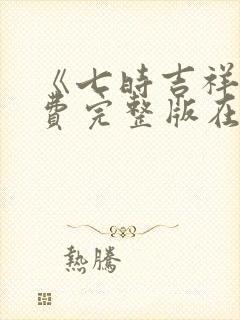 《七時吉祥
費完整版在
熱騰